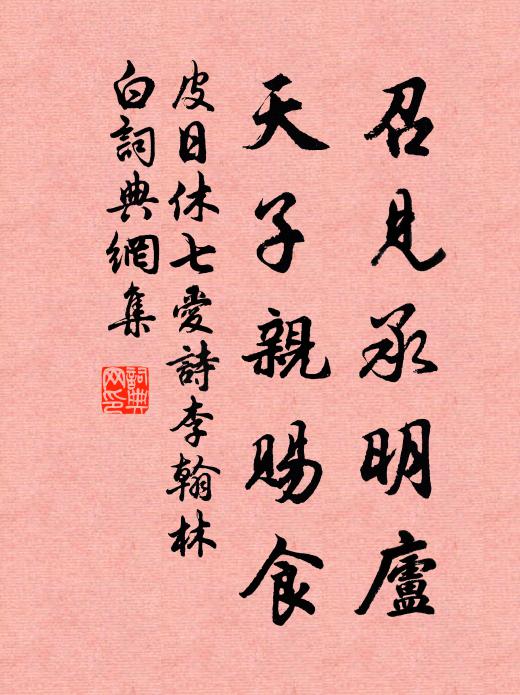 召見承明廬
天子親賜食
皮日休七愛詩李翰林
白詞典網集
詞典
网印